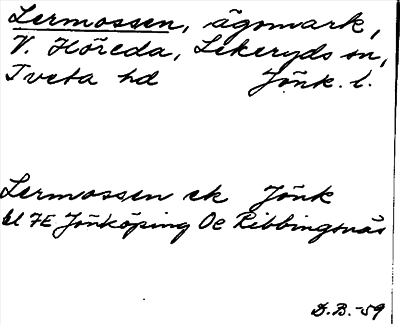 Lermossen, ägomark,
V. Höreda, Lekeryds sn,
Tveta hd Jönk. l.
Lermossen ek Jönk
bl 7E Jönköping Oe Ribbingsnäs
D.B.-59